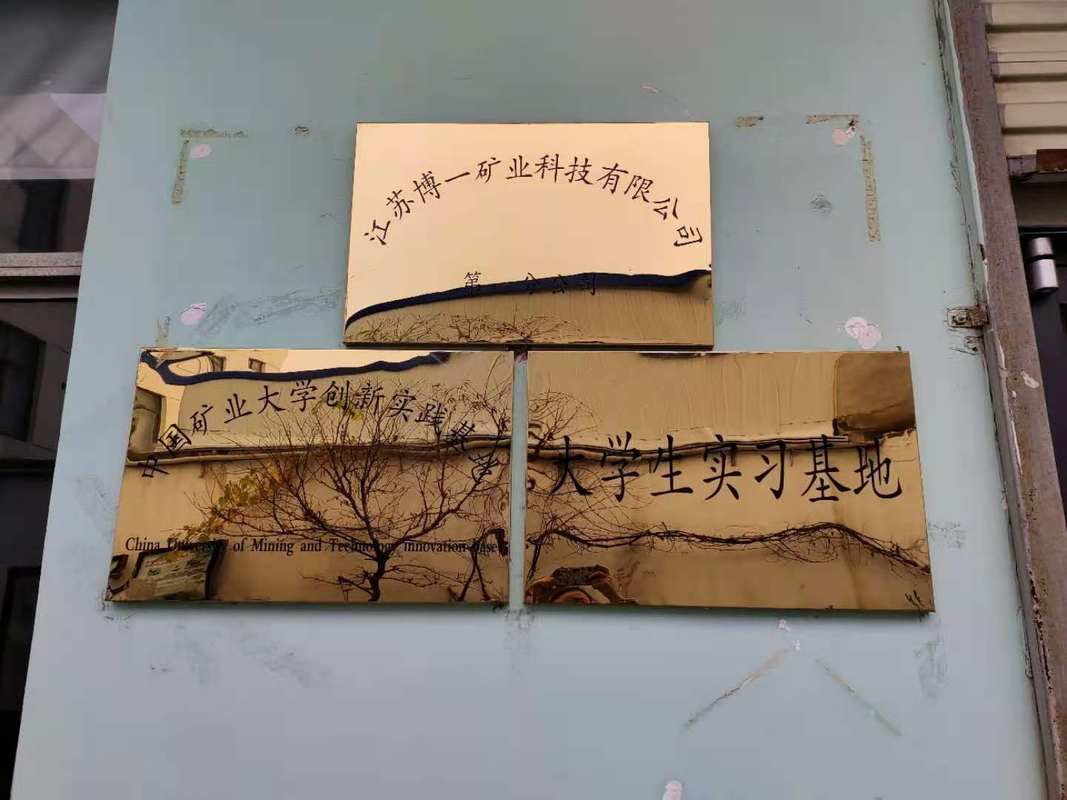 江苏博一矿业科技有限公司
第一分公司
中国矿业大学创新实践基地
China University of Mining and Technology innovation base
大学生实习基地